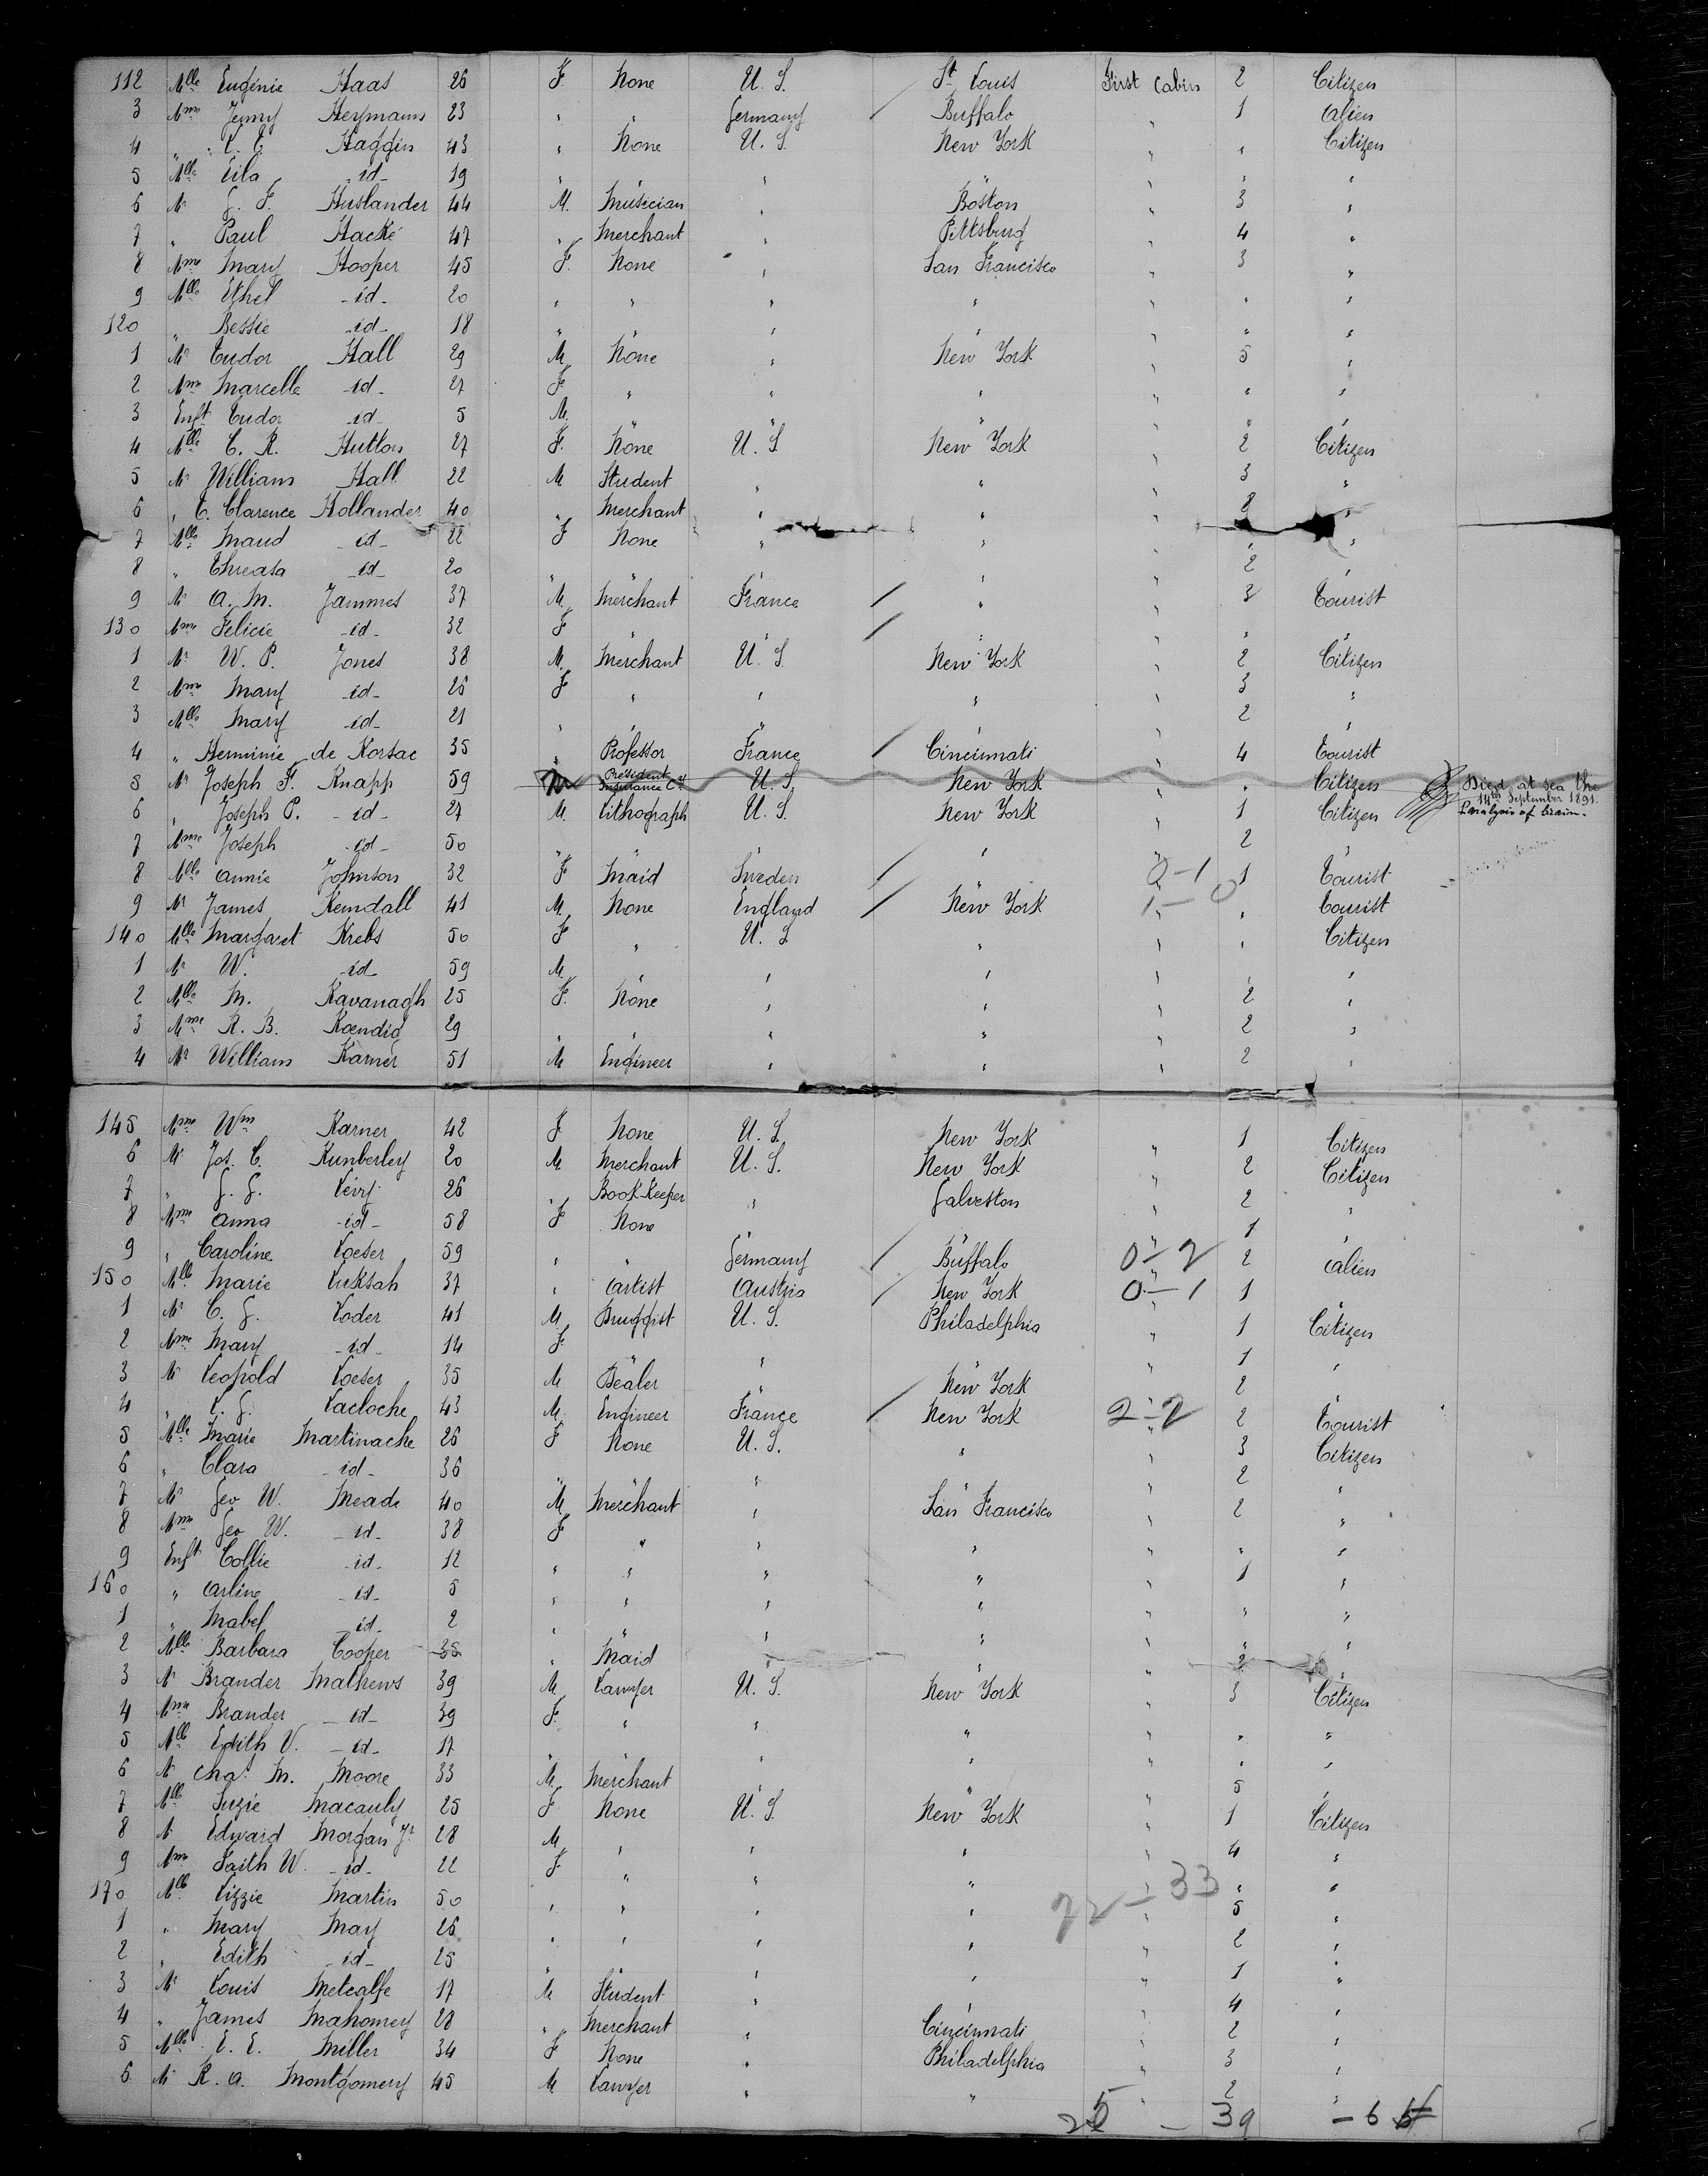 112 Mlle Eugénie Haas 26 F. None U. S. St Louis First Cabin 2 Citizen
3 Mme Jenny Heymann 23 " " Germany / Buffalo " 1 Alien
4 " L. E. Haggin 43 " None U. S. New York " " Citizen
5 Mlle Lila -id- 19 " " " " "
6 Mr G. F. Huslander 44 M. Musician " Boston " 3 "
7 " Paul Hacké 47 " Merchant " Pittsburg " 4 "
8 Mme Mary Hooper 45 F. None " San Francisco " 3 "
9 Mlle Ethel -id- 20 " " " " " " "
120 " Bessie -id- 18 " " " " " "
1 Mr Tudor Hall 29 M None " New York " 5 "
2 Mme Marcelle -id- 27 F " " " " " "
3 Enft Tudor -id- 5 M. " " " " "
4 Mlle C. R. Hutton 27 F. None U. S New York " 2 Citizen
5 Mr William Hall 22 M Student " " " 3 "
6 " T. Clarence Hollander 40 " Merchant " " " 2 "
7 Mlle Maud -id- 22 F None " " " " "
8 " Threasa -id- 20 " " " " " 2 "
9 Mr A. M. Jammes 37 M. Merchant France / " " 3 Tourist
130 Mme Felicie -id- 32 F " " / " " " "
1 Mr W. P. Jones 38 M. Merchant U. S. New York " 2 Citizen
2 Mme Mary -id- 26 F " " " " 3 "
3 Mlle Mary -id- 21 " " " " " 2 "
4 " Herminie de Korsac 35 " Professor France / Cincinnati " 4 Tourist
5 Mr Joseph F. Knapp 59 M President Insurance Cy U. S. New York " " Citizen Died at sea the
14th September 1891.
Paralysis of brain.
6 " Joseph P. -id- 27 M. Lithograph U. S. New York " 1 Citizen
7 Mme Joseph -id- 50 " " " " 2 "
8 Mlle Annie Johnson 32 F Maid Sweden / " 0-1 1 Tourist
9 Mr James Kendall 41 M. None England / New York 1-0 " Tourist
140 Mlle Margaret Krebs 50 F " U. S " " " Citizen
1 Mr W. -id- 59 M. " " " " " "
2 Mlle M. Kavanagh 25 F. None " " " 2 "
3 Mme R. B. Koendig 29 " " " " " 2 "
4 Mr William Karner 51 M Engineer " " " 2 "
145 Mme Wm Karner 42 F None U. S. New York 1 Citizen
6 Mr Jos. C. Kunberley 20 M Merchant U. S. New York " 2 Citizen
7 " G. G. Levy 26 " Book-Keeper " Galveston " 2 "
8 Mme Anna -id- 58 F None " " " 1 "
9 " Caroline Loeser 59 " " Germany / Buffalo 0-2 2 Alien
150 Mlle Marie Luksah 37 " Artist Austria / New York 0-1 1 "
1 Mr C. G. Loder 41 M Druggist U. S. Philadelphia " 1 Citizen
2 Mme Mary -id- 14 F " " " " 1 "
3 Mr Leopold Loeser 35 M Dealer " New York " 2 "
4 " L. G. Lacloche 43 M. Engineer France / New York 2-2 2 Tourist
5 Mlle Marie Martinache 26 F None U. S. " " 3 Citizen
6 " Clara -id- 36 " " " " " 2 "
7 Mr Geo W. Meade 40 M Merchant " San Francisco " 2 "
8 Mme Geo W. -id- 38 F " " " " " "
9 Enft Collie -id- 12 " " " " " 1 "
160 " Arline -id- 5 " " " " " " "
1 " Mabel -id- 2 " " " " " " "
2 Mlle Barbara Cooper 35 " Maid " " " 2 "
3 Mr Brander Mathews 39 M. Lawyer U. S. New York " 3 Citizen
4 Mme Brander -id- 39 F. " " " " " "
5 Mlle Edith V. -id- 17 " " " " " " "
6 Mr Chas M. Moore 33 M. Merchant " " " 5 "
7 Mlle Suzie Macauly 25 F. None U. S. New York " 1 Citizen
8 Mr Edward Morgan Jr 28 M " " " " 4 "
9 Mme Faith W. -id- 22 F " " " " " "
170 Mlle Lizzie Martin 50 " " " " 22-33 5 "
1 " Mary May 26 " " " " " 2 "
2 " Edith -id- 25 " " " " " 1 "
3 Mr Louis Metcalfe 17 M Student " " " 4 "
4 " James Mahomey 28 " Merchant " Cincinnati " 2 "
5 Mlle E. E. Miller 34 F None " Philadelphia " 3 "
6 Mr R. A. Montgomery 45 M Lawyer " " " 2 "
25 - 39 - 6